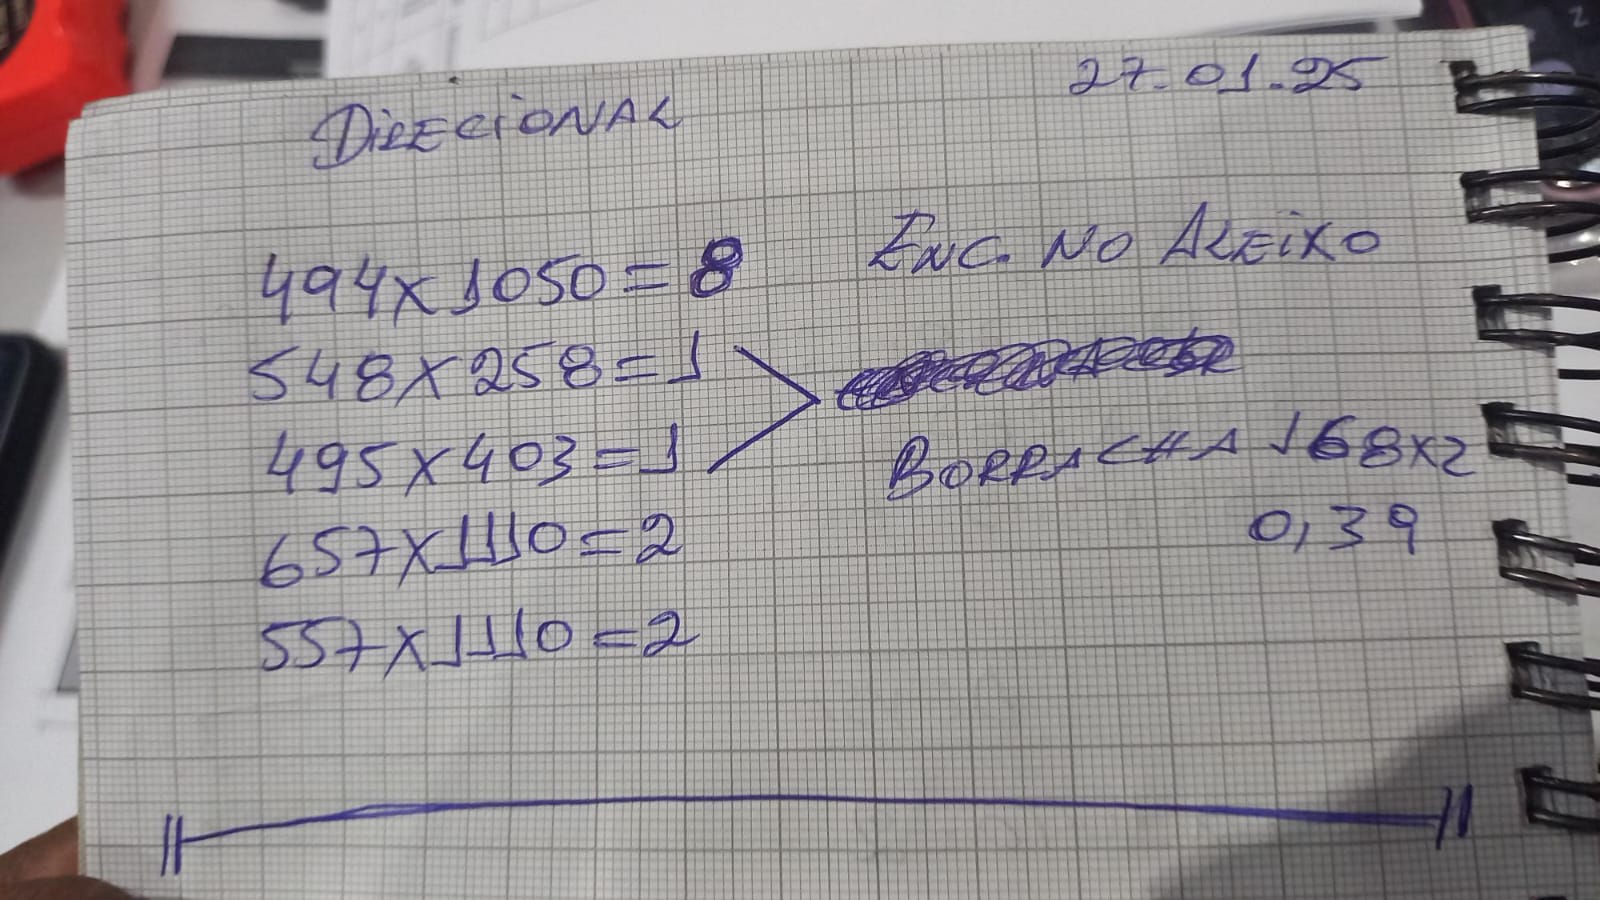 27.01.25
DIRECIONAL
ENC. NO ALEIXO
494x1050=8
548x258=1
495x403=1
BORRACHA 168x2
0,39
657x1110=2
557x1110=2